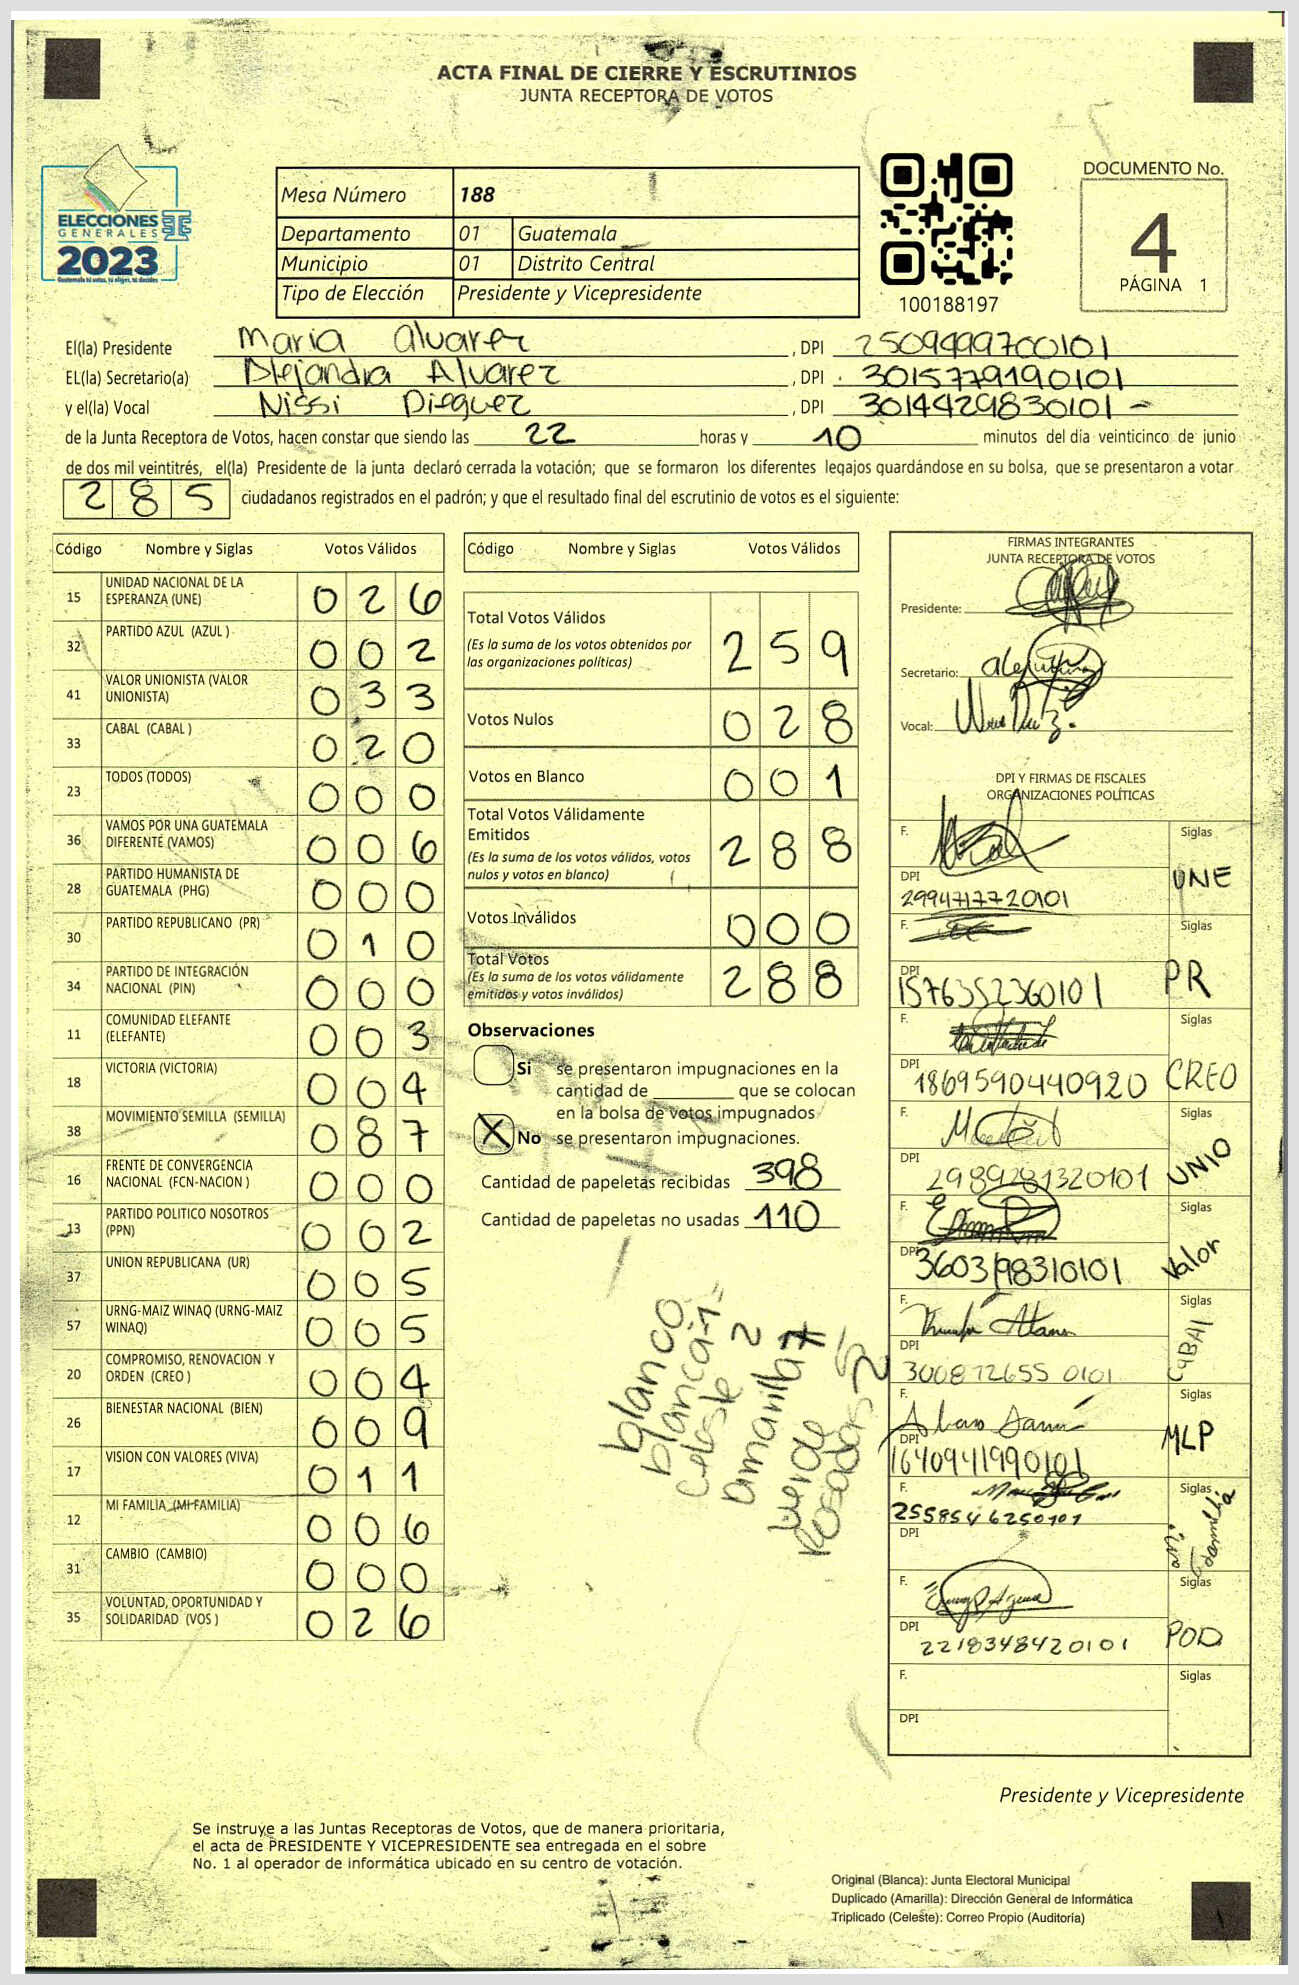 ACTA FINAL DE CIERRE Y ESCRUTINIOS
JUNTA RECEPTORA DE VOTOS
ELECCIONES
GENERALES
2023
Guatemala tú votas, tú eliges, tú decides
Mesa Número 188
Departamento 01 Guatemala
Municipio 01 Distrito Central
Tipo de Elección Presidente y Vicepresidente
100188197
DOCUMENTO No.
4
PÁGINA 1
El(la) Presidente Maria Alvarez , DPI 2509499700101
EL(la) Secretario(a) Alejandra Alvarez , DPI 3015779190101
y el(la) Vocal Nissi Dieguez , DPI 3014429830101 -
de la Junta Receptora de Votos, hacen constar que siendo las 22 horas y 10 minutos del día veinticinco de junio
de dos mil veintitrés, el(la) Presidente de la junta declaró cerrada la votación; que se formaron los diferentes legajos guardándose en su bolsa, que se presentaron a votar
285 ciudadanos registrados en el padrón; y que el resultado final del escrutinio de votos es el siguiente:
Código Nombre y Siglas Votos Válidos
15 UNIDAD NACIONAL DE LA ESPERANZA (UNE) 026
32 PARTIDO AZUL (AZUL ) 002
41 VALOR UNIONISTA (VALOR UNIONISTA) 033
33 CABAL (CABAL ) 020
23 TODOS (TODOS) 000
36 VAMOS POR UNA GUATEMALA DIFERENTE (VAMOS) 006
28 PARTIDO HUMANISTA DE GUATEMALA (PHG) 000
30 PARTIDO REPUBLICANO (PR) 010
34 PARTIDO DE INTEGRACIÓN NACIONAL (PIN) 000
11 COMUNIDAD ELEFANTE (ELEFANTE) 003
18 VICTORIA (VICTORIA) 004
38 MOVIMIENTO SEMILLA (SEMILLA) 087
16 FRENTE DE CONVERGENCIA NACIONAL (FCN-NACION ) 000
13 PARTIDO POLITICO NOSOTROS (PPN) 002
37 UNION REPUBLICANA (UR) 005
57 URNG-MAIZ WINAQ (URNG-MAIZ WINAQ) 005
20 COMPROMISO, RENOVACION Y ORDEN (CREO ) 004
26 BIENESTAR NACIONAL (BIEN) 009
17 VISION CON VALORES (VIVA) 011
12 MI FAMILIA (MI FAMILIA) 006
31 CAMBIO (CAMBIO) 000
35 VOLUNTAD, OPORTUNIDAD Y SOLIDARIDAD (VOS ) 026
Código Nombre y Siglas Votos Válidos
Total Votos Válidos 259
(Es la suma de los votos obtenidos por
las organizaciones políticas)
Votos Nulos 028
Votos en Blanco 001
Total Votos Válidamente
Emitidos 288
(Es la suma de los votos válidos, votos
nulos y votos en blanco)
Votos Inválidos 000
Total Votos 288
(Es la suma de los votos válidamente
emitidos y votos inválidos)
Observaciones
Si se presentaron impugnaciones en la
cantidad de que se colocan
en la bolsa de votos impugnados
X No se presentaron impugnaciones.
Cantidad de papeletas recibidas 398
Cantidad de papeletas no usadas 110
blanco
celeste 2
amarilla 7
verde 5
Rosadas 2
FIRMAS INTEGRANTES
JUNTA RECEPTORA DE VOTOS
Presidente:
Secretario:
Vocal:
DPI Y FIRMAS DE FISCALES
ORGANIZACIONES POLÍTICAS
F. Siglas
DPI UNE
2994717720101
F. Siglas
DPI PR
1576352360101
F. Siglas
DPI 1869590440920 CREO
F. Siglas
DPI UNIO
2989281320101
F. Siglas
DPI 3603198310101 Valor
F. Siglas
DPI CABAl
3008726550101
F. Siglas
DPI MLP
1640941990101
F. Siglas
2558546250101
DPI
F. Siglas
DPI POD
2218348420101
F. Siglas
DPI
Presidente y Vicepresidente
Se instruye a las Juntas Receptoras de Votos, que de manera prioritaria,
el acta de PRESIDENTE Y VICEPRESIDENTE sea entregada en el sobre
No. 1 al operador de informática ubicado en su centro de votación.
Original (Blanca): Junta Electoral Municipal
Duplicado (Amarilla): Dirección General de Informática
Triplicado (Celeste): Correo Propio (Auditoría)